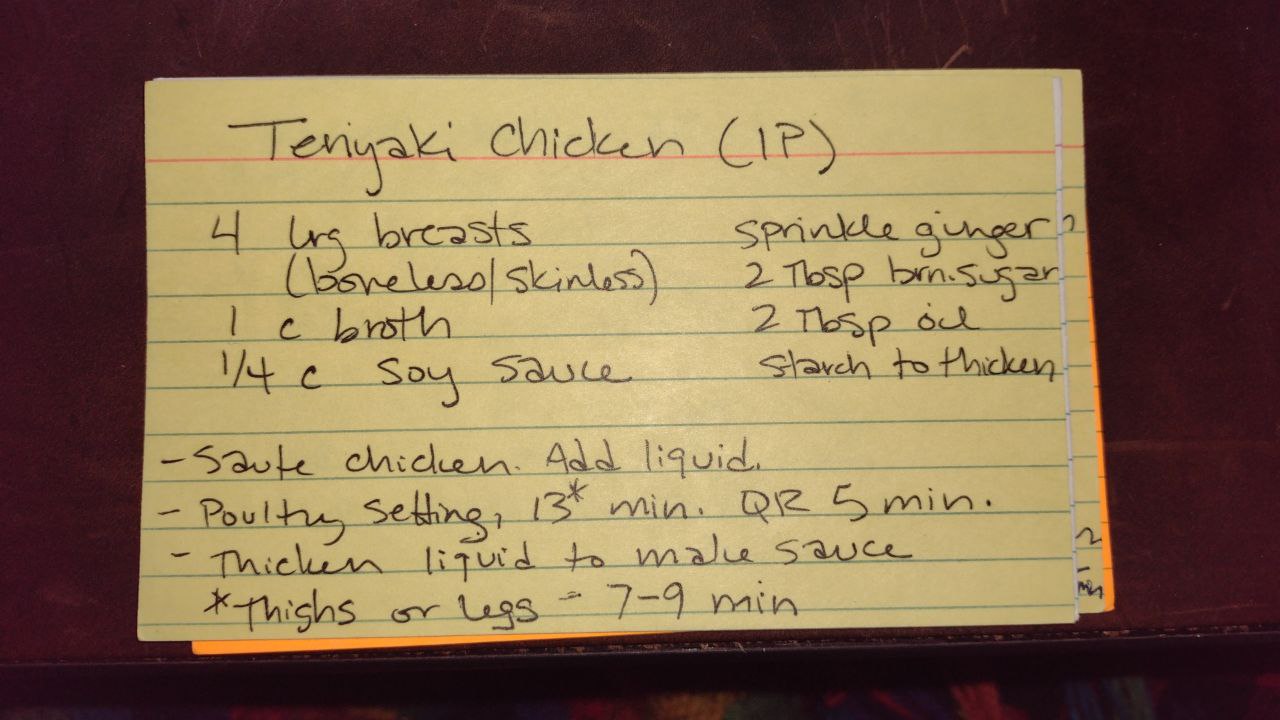 Teriyaki Chicken (IP)
4 lrg breasts
(boneless/skinless)
1 c broth
1/4 c soy sauce
sprinkle ginger
2 Tbsp brn. sugar
2 Tbsp oil
starch to thicken
- Saute chicken. Add liquid.
- Poultry setting, 13* min. QR 5 min.
- Thicken liquid to make sauce
*Thighs or legs - 7-9 min